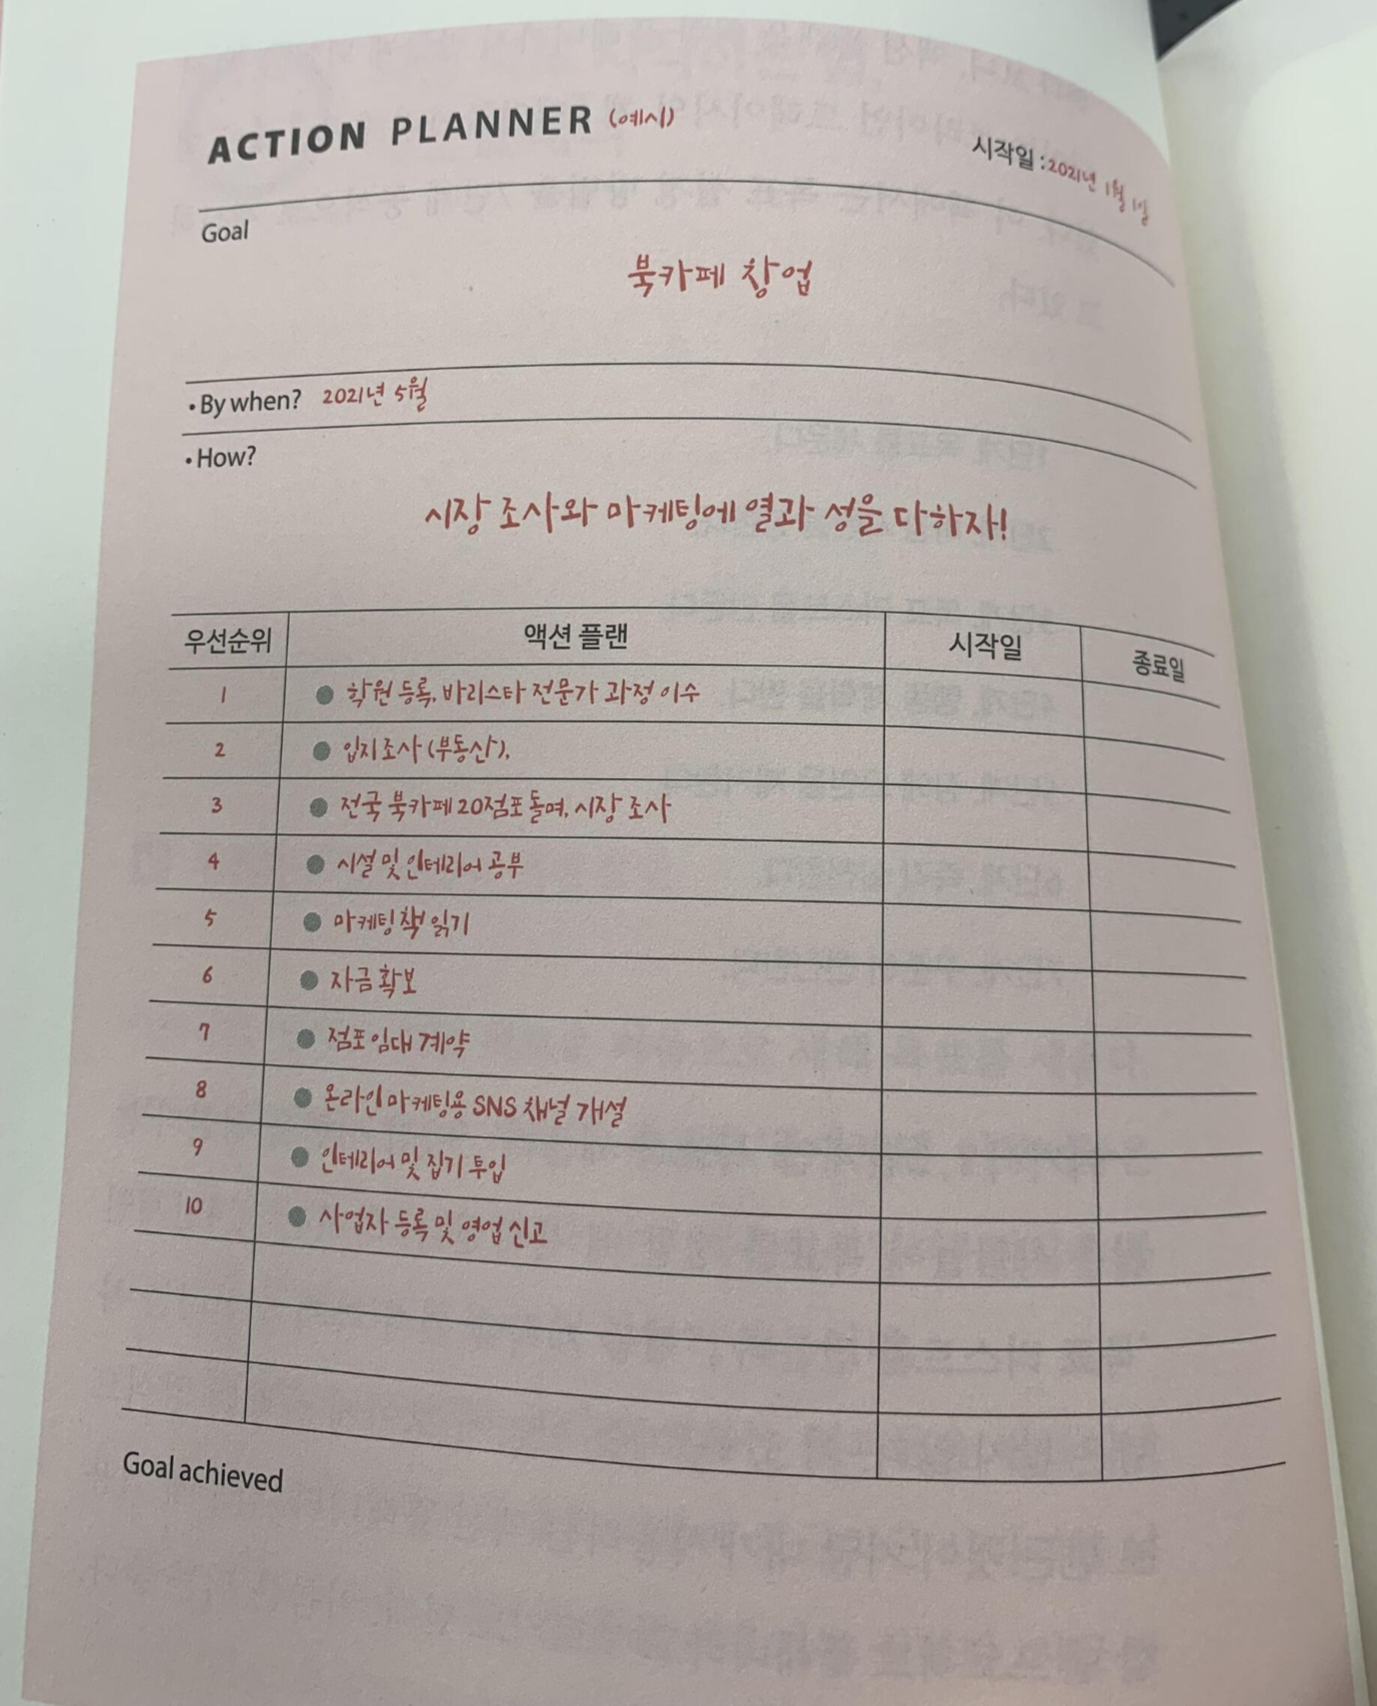 ACTION PLANNER (예시)
시작일 : 2021년 1월 1일
Goal
북카페 창업
• By when? 2021년 5월
• How?
시장 조사와 마케팅에 열과 성을 다하자!
우선순위 액션 플랜 시작일 종료일
1 ● 학원 등록, 바리스타 전문가 과정 이수
2 ● 입지조사 (부동산),
3 ● 전국 북카페 20점포 돌며, 시장 조사
4 ● 시설 및 인테리어 공부
5 ● 마케팅 책 읽기
6 ● 자금 확보
7 ● 점포 임대 계약
8 ● 온라인 마케팅용 SNS 채널 개설
9 ● 인테리어 및 집기 투입
10 ● 사업자 등록 및 영업 신고
Goal achieved